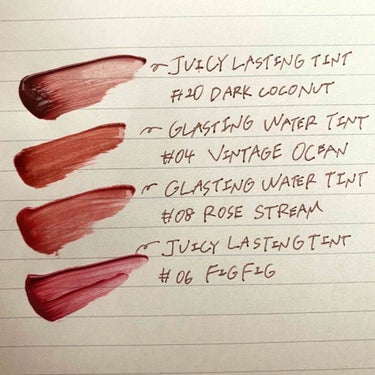 JUICY LASTING TINT
#20 DARK COCONUT
GLASTING WATER TINT
#04 VINTAGE OCEAN
GLASTING WATER TINT
#08 ROSE STREAM
JUICY LASTING TINT
#06 FIGFIG